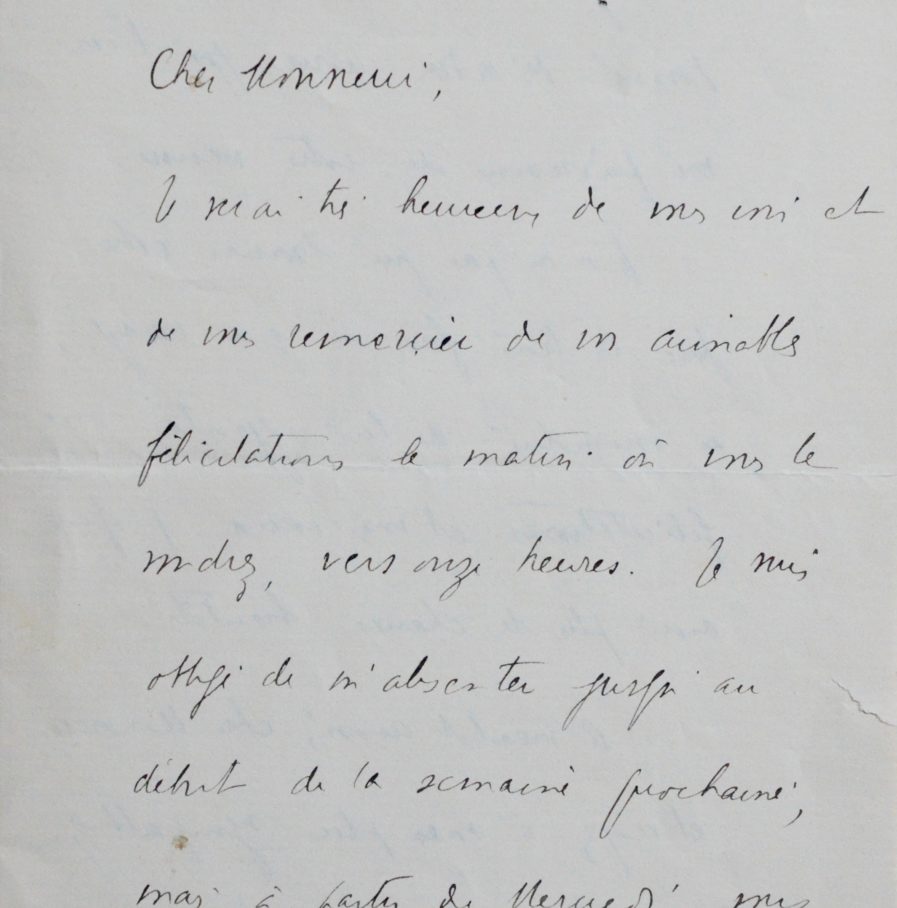 Cher Monsieur,
Je serai très heureux de vous voir et
de vous remercier de vos aimables
félicitations le matin où vous le
voudrez, vers onze heures. Je suis
obligé de m'absenter jusqu'au
début de la semaine prochaine,
mais à partir de Mercredi vous